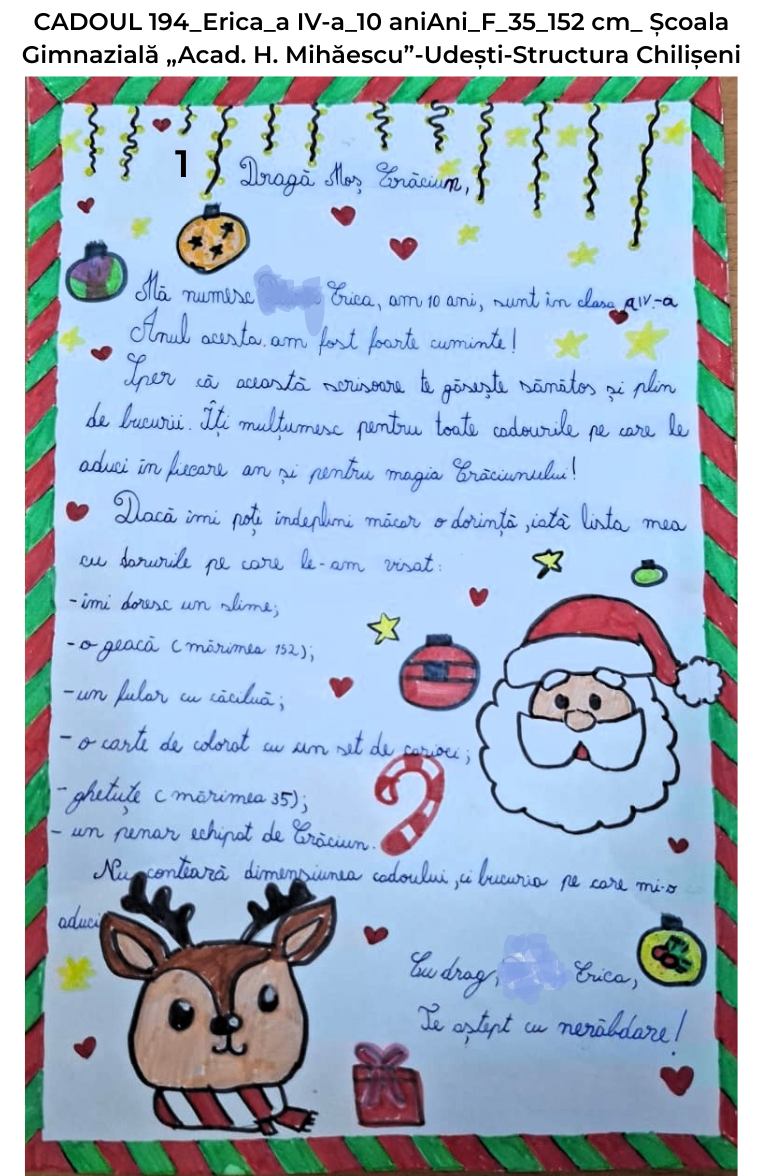 CADOUL 194_Erica_a IV-a_10 aniAni_F_35_152 cm_ Școala
Gimnazială „Acad. H. Mihăescu”-Udești-Structura Chilișeni
1
Dragă Moș Crăciun,
Mă numesc Erica, am 10 ani, sunt în clasa a IV-a
Anul acesta am fost foarte cuminte!
Sper că această scrisoare te găsește sănătos și plin
de bucurii. Îți mulțumesc pentru toate cadourile pe care le
aduci în fiecare an și pentru magia Crăciunului!
Dacă îmi poți îndeplini măcar o dorință, iată lista mea
cu darurile pe care le-am visat:
-îmi doresc un slime;
-o geacă (mărimea 152);
-un fular cu căciulă;
- o carte de colorat cu un set de carioci;
- ghetuțe (mărimea 35);
- un penar echipat de Crăciun.
Nu contează dimensiunea cadoului, ci bucuria pe care mi-o
aduci
Cu drag, Erica,
Te aștept cu nerăbdare!